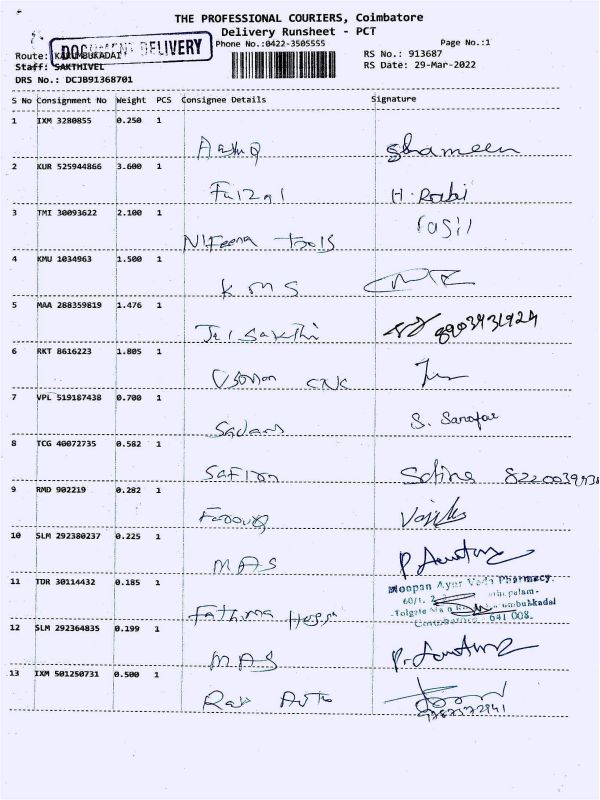 THE PROFESSIONAL COURIERS, Coimbatore
Delivery Runsheet - PCT
DOCUMENT DELIVERY
Phone No.:0422-3505555
Page No.:1
Route: KARUMBUKADAI
RS No.: 913687
Staff: SAKTHIVEL
RS Date: 29-Mar-2022
DRS No.: DCJB91368701
S No Consignment No Weight PCS Consignee Details Signature
1 IXM 3280855 0.250 1
Aashiq Shameen
2 KUR 525944866 3.600 1
Faizal H. Rabi
3 TMI 30093622 2.100 1
Nifeena Tools
4 KMU 1034963 1.500 1
KMS
5 MAA 288359819 1.476 1
Jei Sakthi 8903431924
6 RKT 8616223 1.805 1
Usman CNC
7 VPL 519187438 0.700 1
Sadam S. Sarafar
8 TCG 40072735 0.582 1
Safina
9 RMD 902219 0.282 1
Farooq
10 SLM 292380237 0.225 1
MAS
11 TDR 30114432 0.185 1
Moopan Ayur Veda Pharmacy
Fathima 641 008.
12 SLM 292364835 0.199 1
MAS
13 IXM 501250731 0.500 1
Raja Auto